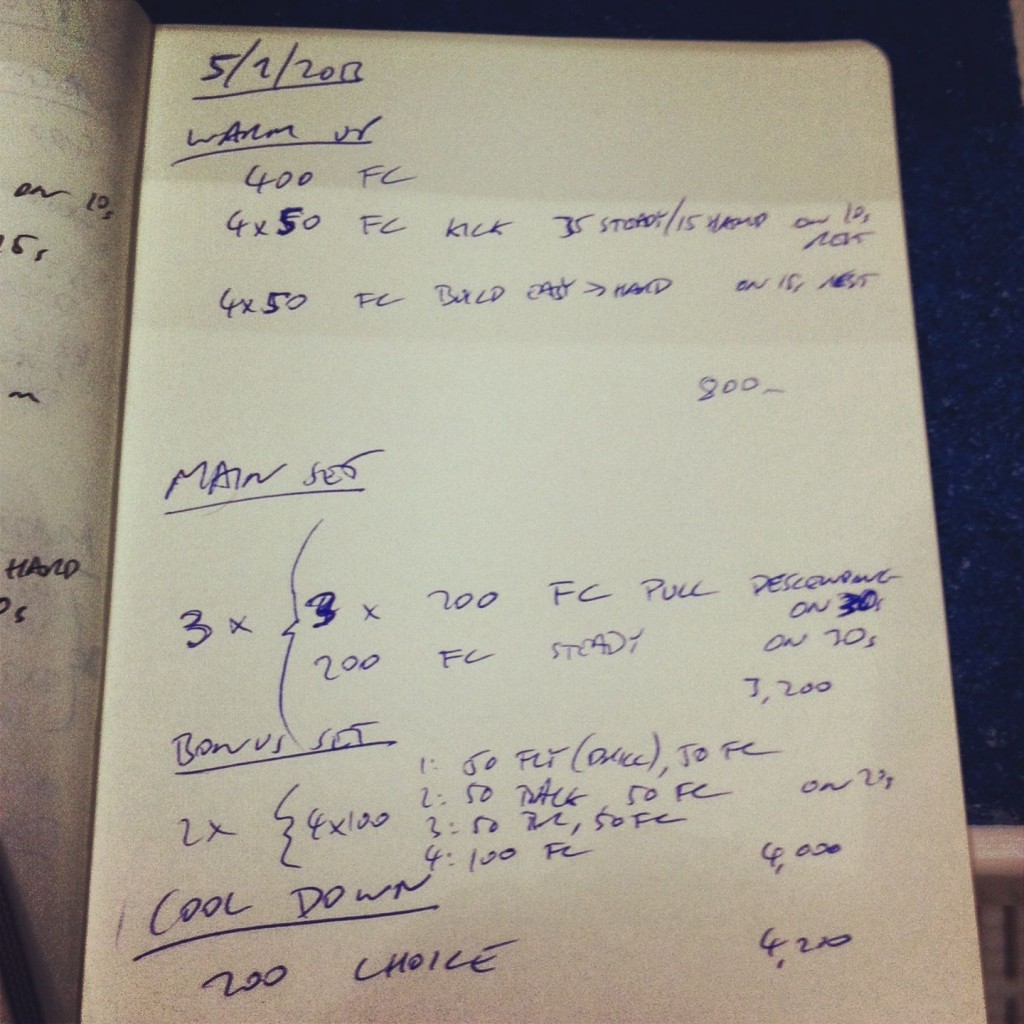 on 10s
15s
m
HARD
0s
5/1/2013
WARM UP
400 FC
4x50 FC KICK 35 STEADY/15 HARD on 10s
REST
4x50 FC BUILD EASY > HARD on 15s REST
800
MAIN SET
3 x { 3 x 200 FC PULL DESCENDING
ON 30s
200 FC STEADY ON 30s
3,200
BONUS SET
1: 50 FLY (DRILL), 50 FC
2: 50 BACK 50 FC on 20s
2x { 4x100
3: 50 , 50 FC
4: 100 FC
4,000
COOL DOWN
200 CHOICE
4,200